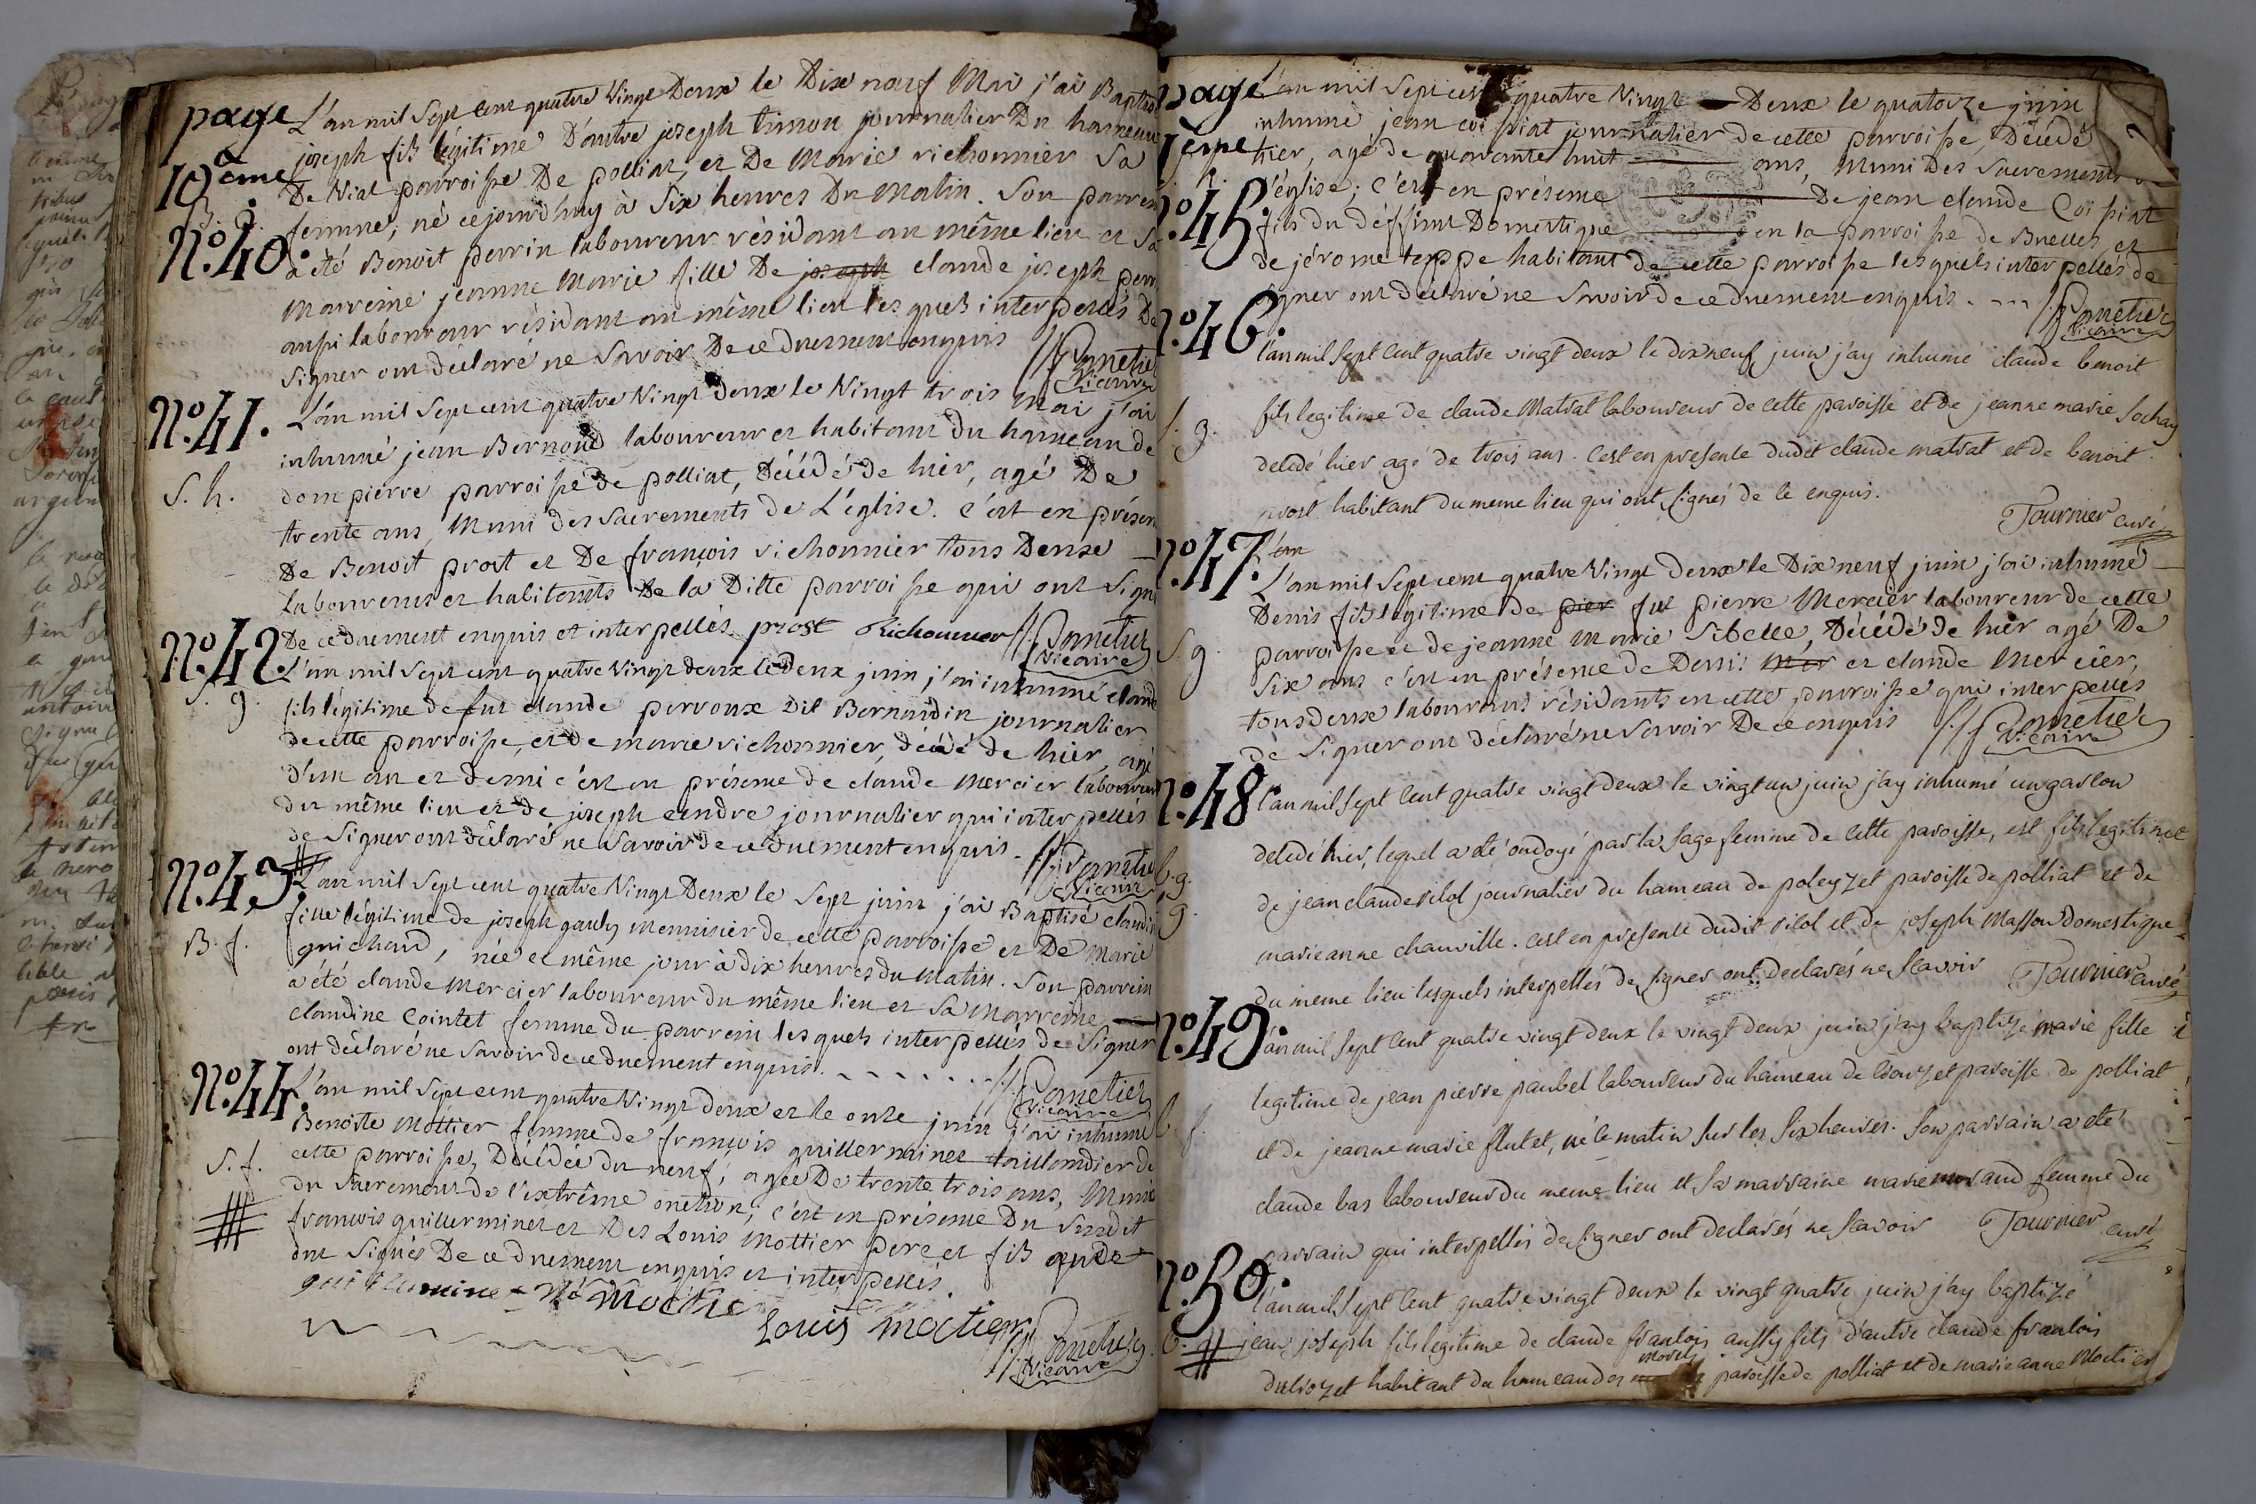 page
10ème
L'an mil Sept cent quatre Vingt Deux le Dix neuf Mai j'ai Baptisé
joseph fils légitime D'autre joseph timon journalier Du hameau
De Viat parroisse De polliat, et De Marie richonnier Sa
femme, né cejourdhuy à Six heures Du Matin. Son parrein
N.º 40.
a été Benoit perrin laboureur résidant au même lieu et Sa
Marreine jeanne Marie fille De joseph claude joseph perrin
aussi laboureur résidant au même lieu les quels interpellés De
Signer ont déclaré ne Savoir De ce duement enquis
Vicaire
N.º 41.
L'an mil Sept cent quatre Vingt Deux le Vingt trois Mai j'ai
inhumé jean Bernoud laboureur et habitant du hameau de
S. h.
dompierre parroisse de polliat, Décédé de hier, agé De
trente ans, Muni des Sacrements de L'église. C'est en présence
De Benoit prost et De françois richonnier tous Deux
laboureurs et habitants De la Ditte parroisse qui ont Signé
De ce duement enquis et interpellés. prost Richonnier
Vicaire
N.º 42.
L'an mil Sept cent quatre Vingt deux le deux juin j'ai inhumé claude
S. g.
fils légitime de fut claude perroux dit Bernardin journalier
de cette parroisse, et de marie richonnier, décédé de hier, agé
d'un an et demi c'est en présence de claude Mercier laboureur
du même lieu et de joseph cendre journalier qui interpellés
de Signer ont déclaré ne Savoir de ce duement enquis.
Vicaire
N.º 43.
L'an mil Sept cent quatre Vingt Deux le Sept juin j'ai Baptisé claudine
fille légitime de joseph gauly Menuisier de cette parroisse et De Marie
B. f.
guichard, née ce même jour à dix heures du Matin. Son parrein
a été claude Mercier laboureur du même lieu et Sa Marreine
claudine Cointet femme du parrein les quels interpellés de Signer
ont déclaré ne Savoir de ce duement enquis.
Vicaire
N.º 44.
L'an mil Sept cent quatre Vingt deux et le onze juin j'ai inhumé
Benoite Mottier femme de françois guillerminet taillandier de
S. f.
cette parroisse, Décédée du neuf, agée De trente trois ans, Munie
du Sacrement de l'extrême onction; c'est en présence Du Susdit
françois guillerminet et Des Louis Mottier pere et fils
ont Signés De ce duement enquis et interpellés.
Louis moctier
Vicaire
page
L'an mil Sept cent quatre Vingt Deux le quatorze juin
inhumé jean coissiat journalier de cette parroisse, Décédé
hier, agé de quarante huit ans, Muni Des Sacrements
l'église; C'est en présence De jean claude Coissiat
N.º 45.
fils du déffunt Domestique en la parroisse de Buelles, et
de jérome teppe habitant de cette parroisse lesquels interpellés de
Signer ont déclaré ne Savoir de ce duement enquis.
Vicaire
N.º 46.
l'an mil sept cent quatre vingt deux le dix neuf juin j'ay inhumé claude benoit
S. g.
fils legitime de claude Matrat laboureur de cette paroisse et de jeanne marie Sochay
decedé hier agé de trois ans. c'est en presence dudit claude matrat et de benoit
prost habitant du meme lieu qui ont signés de ce enquis.
Tournier curé
N.º 47.
l'an
L'an mil Sept cent quatre Vingt deux le Dix neuf juin j'ai inhumé
Denis fils légitime de pier fut pierre Mercier laboureur de cette
S. g.
parroisse et de jeanne Marie Sibelle, Décédé de hier agé De
Six ans c'est en présence de Denis Mer et claude Mercier,
tous deux laboureurs résidants en cette parroisse qui interpellés
de Signer ont déclaré ne Savoir De ce enquis
Vicaire
N.º 48
l'an mil sept cent quatre vingt deux le vingt un juin j'ay inhumé un garcon
decedé hier, lequel a eté ondoyé par la sage femme de cette paroisse, est fils legitime
de jean claude vilol journalier du hameau de poleyzet paroisse de polliat et de
marie anne chanville. c'est en presence dudit vilol et de joseph Masson Domestique
du meme lieu lesquels interpellés de signer ont declarés ne scavoir Tournier curé
N.º 49.
l'an mil sept cent quatre vingt deux le vingt deux juin j'ay baptizé marie fille
legitime de jean pierre paubel laboureur du hameau de crouzet paroisse de polliat
b. f.
et de jeanne marie flutet, né le matin sur les six heures. son parrain a eté
claude bas laboureur du meme lieu et sa marraine marie morand femme du
parrain qui interpellés de signer ont declarés ne scavoir Tournier curé
N.º 50.
l'an mil sept cent quatre vingt deux le vingt quatre juin j'ay baptizé
b. g.
jean joseph fils legitime de claude francois aussy fils d'autre claude francois
ducrozet habitant du hameau des paroisse de polliat et de marie anne Moctier